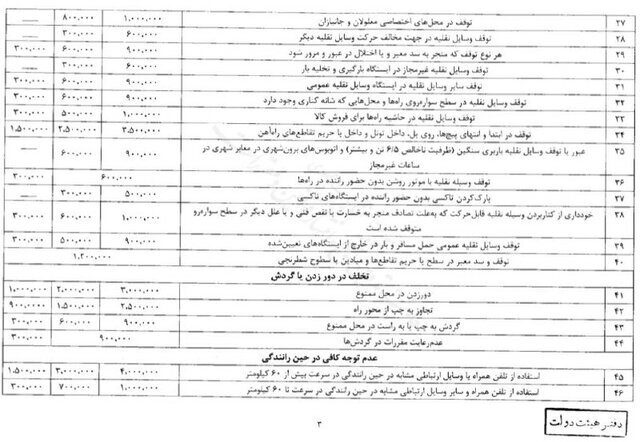 ۲۷ توقف در محل‌های اختصاصی معلولان و جانبازان ۱،۰۰۰،۰۰۰ ۸۰۰،۰۰۰ ——
۲۸ توقف وسایل نقلیه در جهت مخالف حرکت وسایل نقلیه دیگر ۶۰۰،۰۰۰ ۳۰۰،۰۰۰ ——
۲۹ هر نوع توقف که منجر به سد معبر و یا اختلال در عبور و مرور شود ۹۰۰،۰۰۰ ۶۰۰،۰۰۰ ۳۰۰،۰۰۰
۳۰ توقف وسایل نقلیه غیرمجاز در ایستگاه بارگیری و تخلیه بار ۶۰۰،۰۰۰ ۳۰۰،۰۰۰ ——
۳۱ توقف سایر وسایل نقلیه در ایستگاه وسایل نقلیه عمومی ۹۰۰،۰۰۰ ۶۰۰،۰۰۰ ۳۰۰،۰۰۰
۳۲ توقف وسایل نقلیه در سطح سواره‌روی راه‌ها و محل‌هایی که شانه کناری وجود دارد ۹۰۰،۰۰۰ ۶۰۰،۰۰۰ ۳۰۰،۰۰۰
۳۳ توقف وسایل نقلیه در حاشیه راه‌ها برای فروش کالا ۱،۰۰۰،۰۰۰ ۵۰۰،۰۰۰ ۳۰۰،۰۰۰
۳۴ توقف در ابتدا و انتهای پیچ‌ها، روی پل، داخل تونل و داخل یا حریم تقاطع‌های راه‌آهن ۳،۵۰۰،۰۰۰ ۲،۵۰۰،۰۰۰ ۱،۵۰۰،۰۰۰
۳۵ عبور یا توقف وسایل نقلیه باربری سنگین (ظرفیت ناخالص ۶/۵ تن و بیشتر) و اتوبوس‌های برون‌شهری در معابر شهری در ۹۰۰،۰۰۰ ۶۰۰،۰۰۰ ——
ساعات غیرمجاز
۳۶ توقف وسیله نقلیه با موتور روشن بدون حضور راننده در راه‌ها ۶۰۰،۰۰۰ ۳۰۰،۰۰۰
۳۷ پارک‌کردن تاکسی بدون حضور راننده در ایستگاه‌های تاکسی ۵۰۰،۰۰۰ ۳۰۰،۰۰۰ ——
۳۸ خودداری از کناربردن وسیله نقلیه قابل‌حرکت که به‌علت تصادف منجر به خسارت یا نقص فنی و یا علل دیگر در سطح سواره‌رو ۱،۰۰۰،۰۰۰ ۶۰۰،۰۰۰ ۳۰۰،۰۰۰
متوقف شده است
۳۹ توقف وسایل نقلیه عمومی حمل مسافر و بار در خارج از ایستگاه‌های تعیین‌شده ۹۰۰،۰۰۰ ۵۰۰،۰۰۰ ۳۰۰،۰۰۰
۴۰ توقف و سد معبر در سطح یا حریم تقاطع‌ها و میادین با سطوح شطرنجی ۱،۲۰۰،۰۰۰
تخلف در دور زدن یا گردش
۴۱ دورزدن در محل ممنوع ۳،۰۰۰،۰۰۰ ۲،۰۰۰،۰۰۰ ۱،۰۰۰،۰۰۰
۴۲ تجاوز به چپ از محور راه ۲،۵۰۰،۰۰۰ ۱،۵۰۰،۰۰۰ ۹۰۰،۰۰۰
۴۳ گردش به چپ یا به راست در محل ممنوع ۹۰۰،۰۰۰ ۶۰۰،۰۰۰ ۳۰۰،۰۰۰
۴۴ عدم‌رعایت مقررات در گردش‌ها ۹۰۰،۰۰۰ ۳۰۰،۰۰۰
عدم توجه کافی در حین رانندگی
۴۵ استفاده از تلفن همراه یا وسایل ارتباطی مشابه در حین رانندگی در سرعت بیش از ۶۰ کیلومتر ۴،۰۰۰،۰۰۰ ۳،۰۰۰،۰۰۰ ۱،۵۰۰،۰۰۰
۴۶ استفاده از تلفن همراه و سایر وسایل ارتباطی مشابه در حین رانندگی در سرعت تا ۶۰ کیلومتر ۱،۰۰۰،۰۰۰ ۷۰۰،۰۰۰ ۳۰۰،۰۰۰
۳
دفتر هیئت دولت